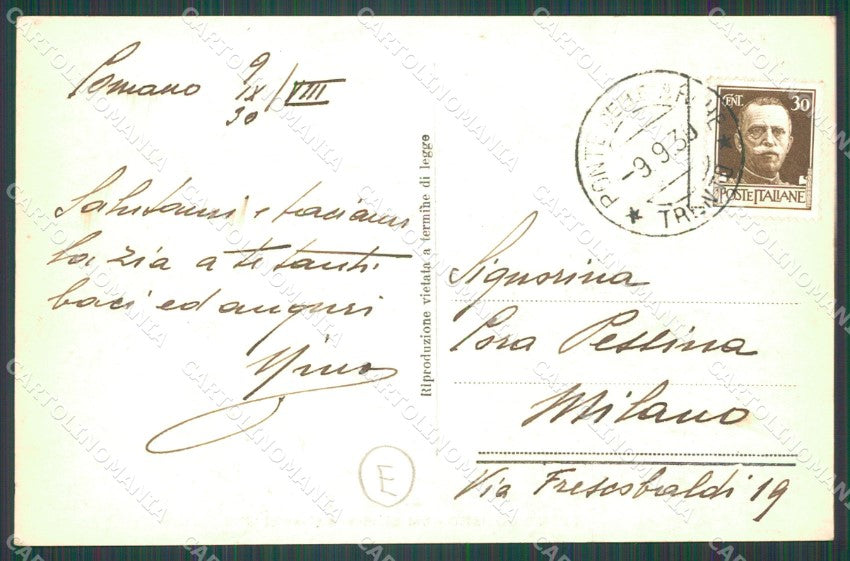 Pomano 9
IX / VIII
30
Salutami e baciami
la zia a te tanti
baci ed auguri
Riproduzione vietata a termine di legge
PONTE DELLE ARCHE
-9.9.30
(TRENTO)
CENT. 30
POSTE ITALIANE
Signorina
Pessina
Milano
Via Frescobaldi 19
E
CARTOLINOMANIA